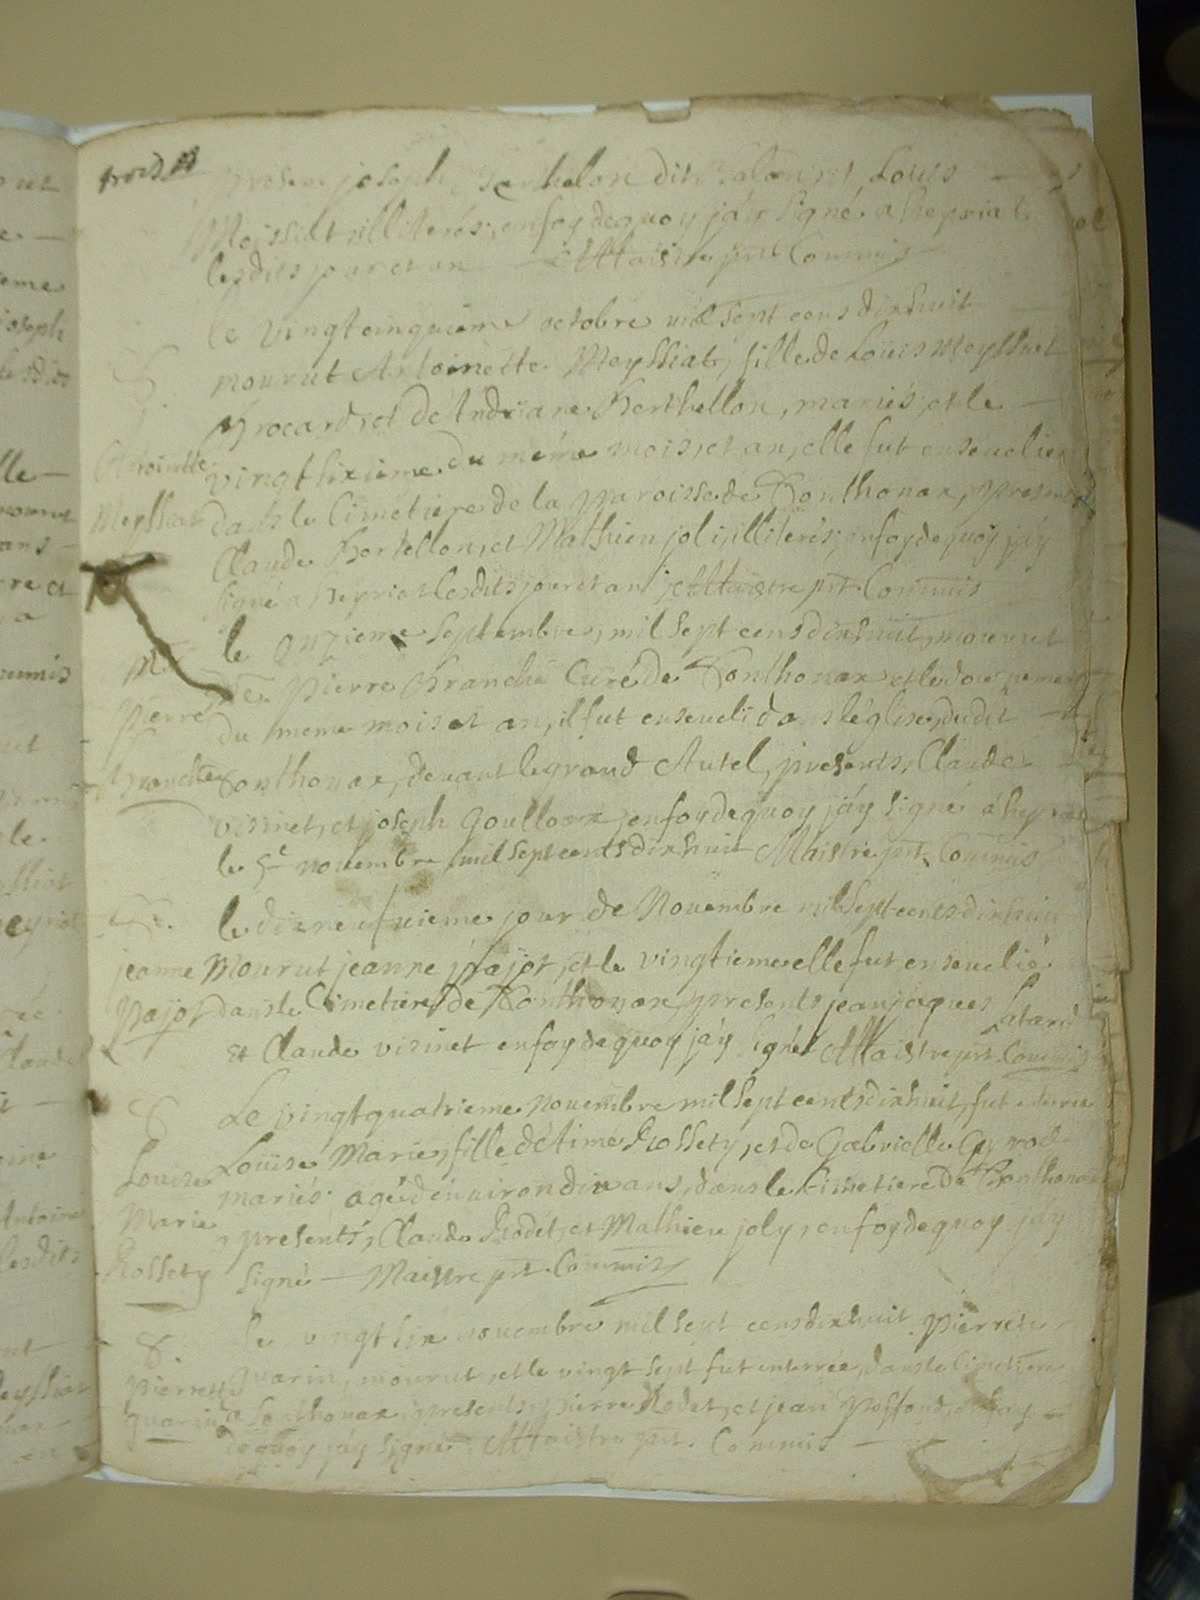 trois
joseph Berthelon dit et Louis
Moissiat illiterés, enfoy dequoy j'ay signé a heyriat
lesdits jour et an Maistre prt Commis
le vingt cinquieme octobre mil sept cens dixhuit
mourut Antoinette Meyssiat, fille de Loüis Meyssiat
Brocard, et de Andriane Berthellon, mariés, et le
Antoinette
vingt sixieme du méme mois, et an, elle fut ensevelie
Meyssiat
dans le Cimetiere de la paroisse de Sonthonax, presents
Claude Bertellon, et Mathieu joli, illiterés, enfoy dequoy j'áy
signé a heyriat lesdits jour et an Maistre prt Commis
le onzieme septembre, mil sept cens dixhuit, mourut
Mre
Mre pierre Branche Curé de Sonthonax et le douzieme
pierre
du meme mois et an, il fut enseveli dans l'église, dudit
Branche
Sonthonax, devant le grand Autel, presents, Claude
visinet, et joseph Goulloux, enfoy dequoy j'áy signé á heyriat
le 5e novembre mil sept cents dixhuit Maistre prt Commis
le dixneufvieme jour de Novembre mil sept cents dixhuit
jeanne
Mourut jeanne pajot, et le vingtieme elle fut ensevelie
pajot
dans le Cimetiere de Sonthonax, presents jean jaques
et Claude visinet enfoy dequoy j'áy signé Maistre prt Commis
Le vingtquatrieme novembre mil sept cents dixhuit, fut enterrée
Louise
Loüise Marie, fille d'étimé Rossety, et de Gabrielle
mariés, agé d'environ dix ans, dans le Cimetiere de Sonthonax
Marie
presents, Claude Rodet, et Mathieu joly, enfoy dequoy j'áy
Rossety
signé Maistre prt Commis
le vingt six novembre mil sept cens dixhuit pierrette
pierrette
guarin, mourut, et le vingt sept fut enterrée, dans le Cimetiere
guarin
a Sonthonax, presents, pierre Rodet, et jean enfoy
dequoy j'áy signé Maistre prt Commis